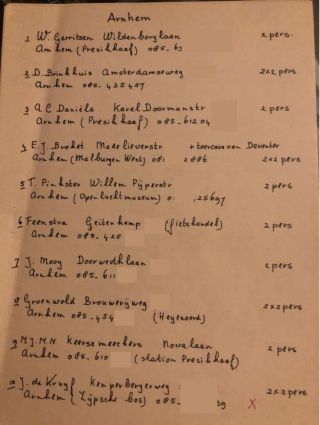 Arnhem
1 W. Gerritsen Wildenborglaan 2 pers.
Arnhem (Presikhaaf) 085-63
2 D. Brinkhuis Amsterdamseweg 2x2 pers
Arnhem 085-435457
3 A.C. Daniëls Karel Doormanstr 2 pers
Arnhem (Presikhaaf) 085-61204
4 E.J. Broket Madelievenstr + toercaravan Deventer
Arnhem (Malburgen West) 081 2886 2x2 pers
5 T. Pinkster Willem Pijperstr 2 pers
Arnhem (Openluchtmuseum) 0 ,25697
6 Feenstra Geitenkamp (fietshandel) 2 pers
Arnhem 085-420
7 J. Mooy Doorwerthlaan 2 pers
Arnhem 085-611
8 Groenwold Brouwerijweg 2x2 pers
Arnhem 085-454 (Heyenoord)
9 M.J.M.N Keersemeechers Novalaan 2 pers
Arnhem 085-610 (station Presikhaaf)
10 J. de Kruyf Kemperbergerweg 2x2 pers
Arnhem (Zijpsche bos) 085- 39 X